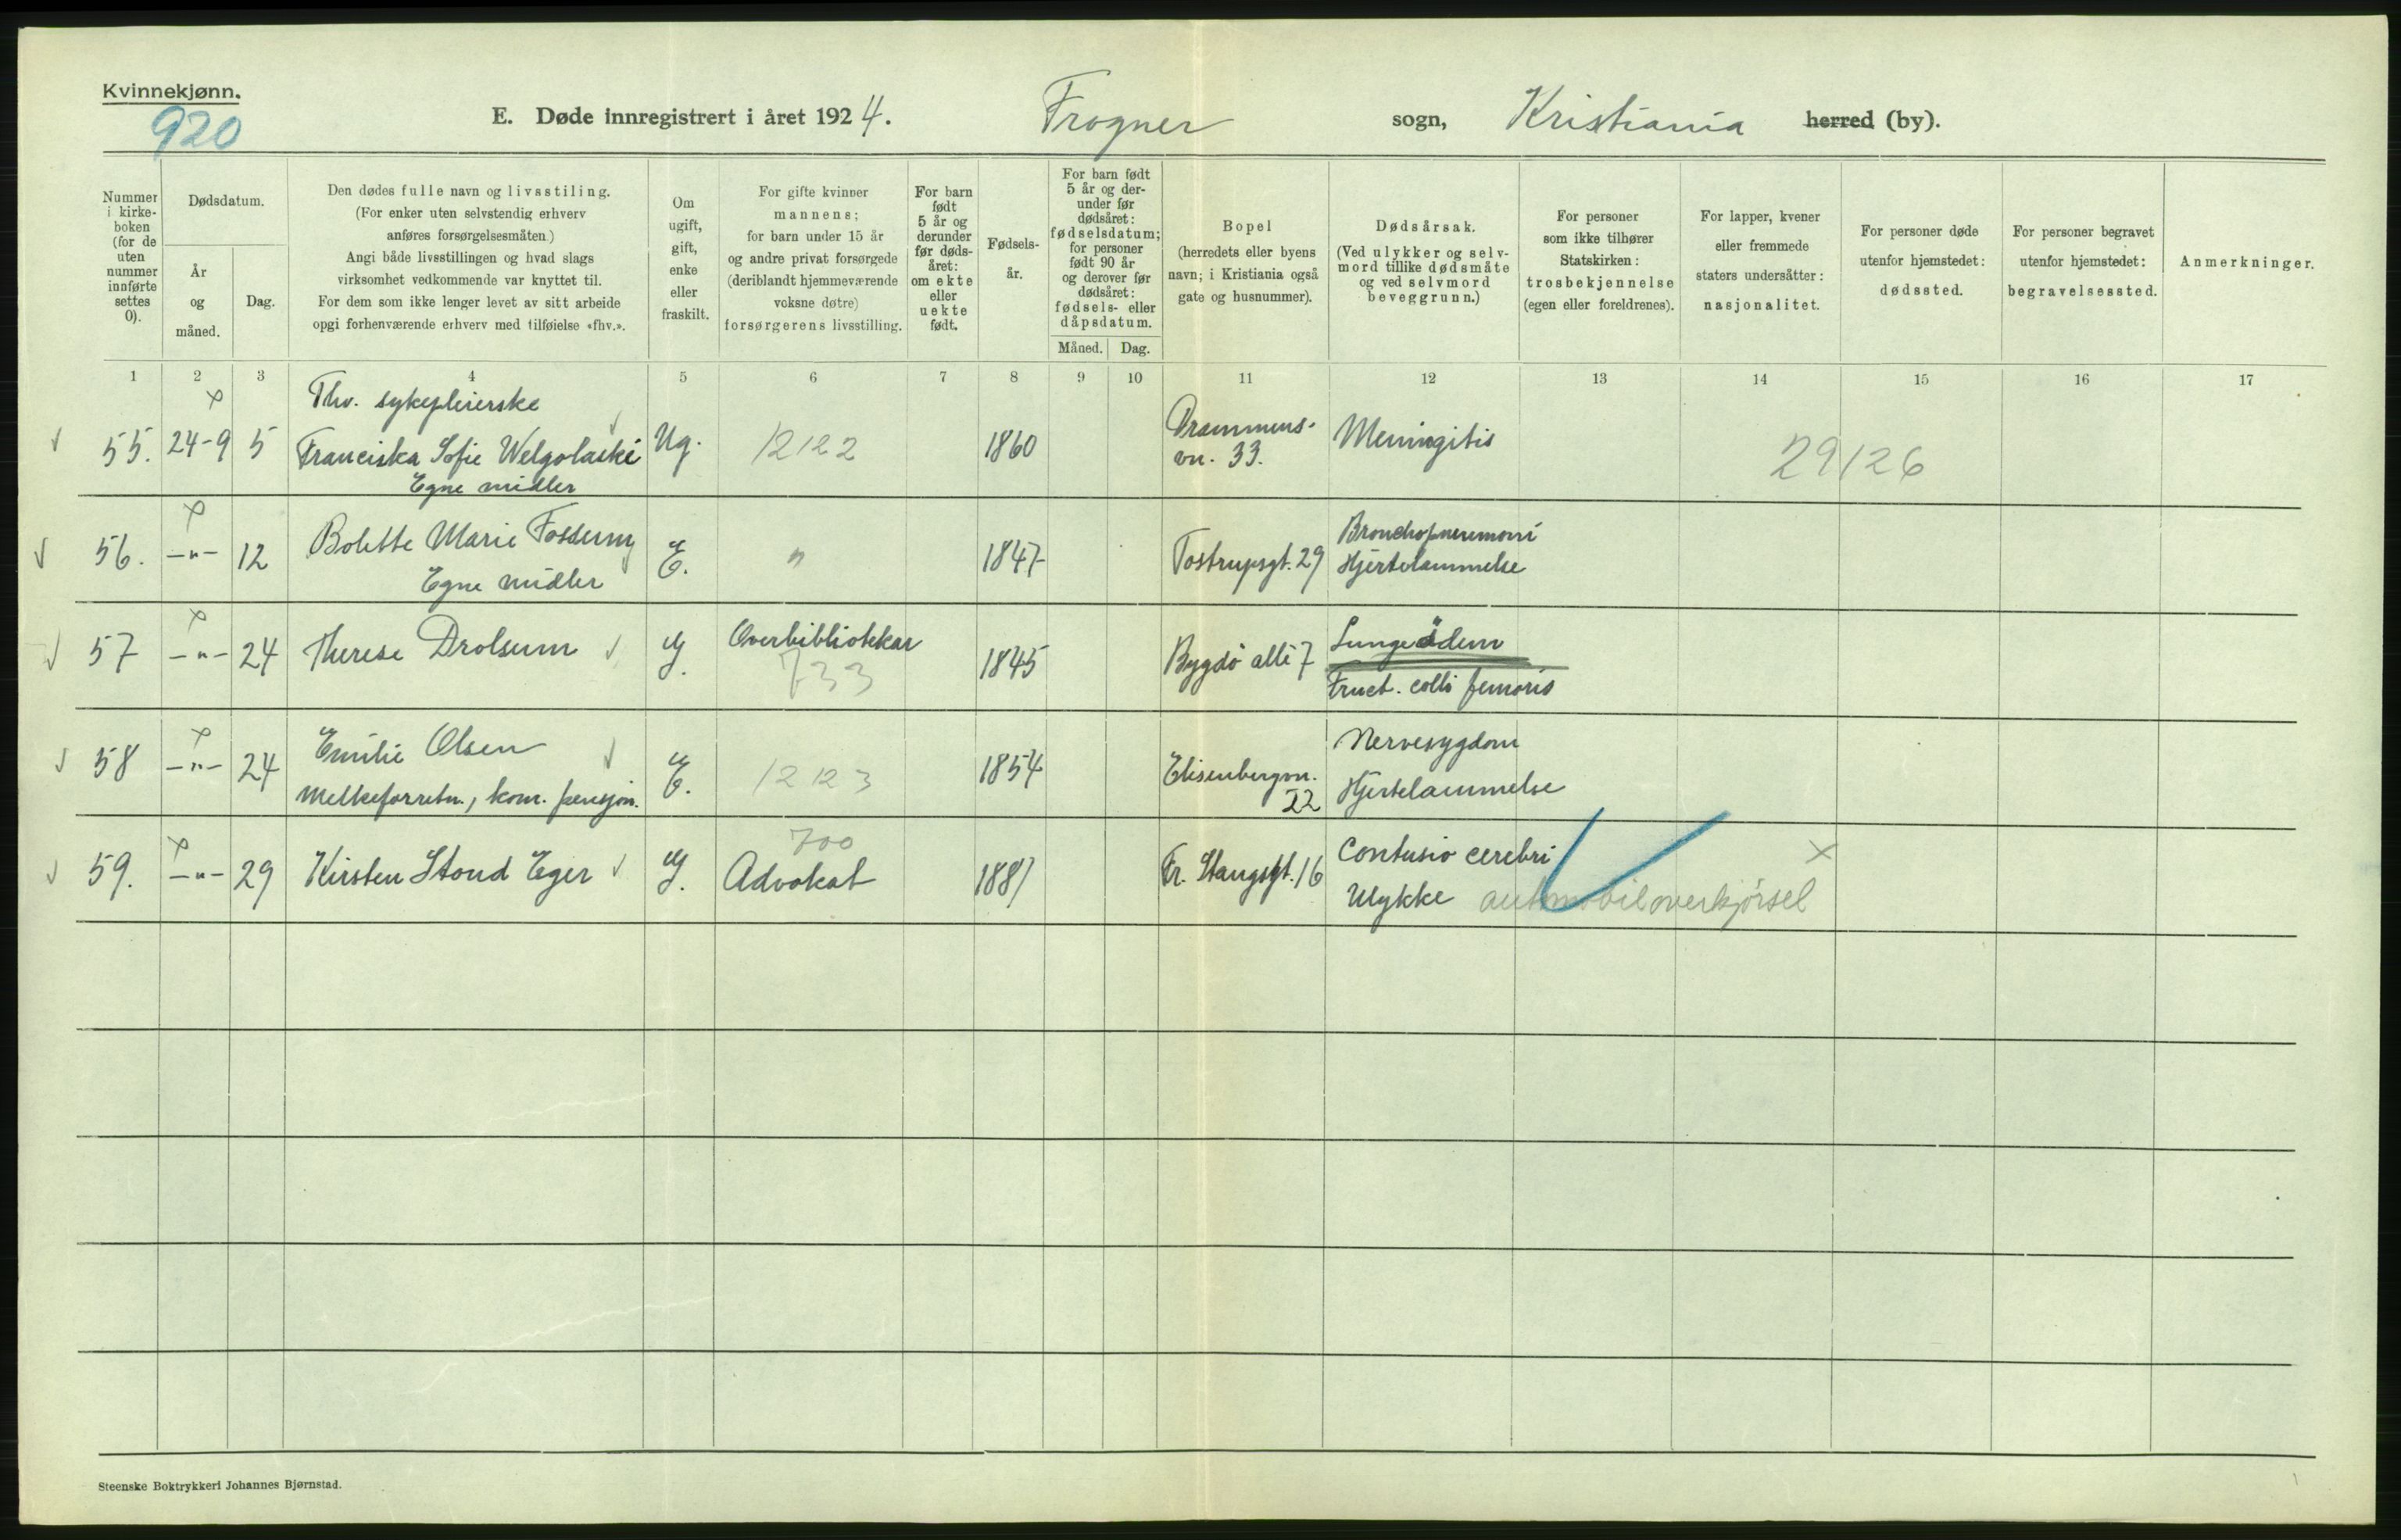 Kvinnekjønn.
920
E. Døde innregistrert i året 1924. Frogner sogn, Kristiania herred (by).
Nummer i kirke-boken (for de uten nummer innførte settes 0).
Dødsdatum.
År og måned.
Dag.
Den dødes fulle navn og livsstiling.
(For enker uten selvstendig erhverv
anføres forsørgelsesmåten.)
Angi både livsstillingen og hvad slags
virksomhet vedkommende var knyttet til.
For dem som ikke lenger levet av sitt arbeide
opgi forhenværende erhverv med tilføielse «fhv.».
Om
ugift,
gift,
enke
eller
fraskilt.
For gifte kvinner
mannens;
for barn under 15 år
og andre privat forsørgede
(deriblandt hjemmeværende
voksne døtre)
forsørgerens livsstilling.
For barn
født
5 år og
derunder
før døds-
året:
om ekte
eller
uekte
født.
Fødsels-
år.
For barn født
5 år og der-
under før
dødsåret:
fødselsdatum;
for personer
født 90 år
og derover før
dødsåret:
fødsels- eller
dåpsdatum.
Måned. Dag.
Bopel
(herredets eller byens
navn; i Kristiania også
gate og husnummer).
Dødsårsak.
(Ved ulykker og selv-
mord tillike dødsmåte
og ved selvmord
beveggrunn.)
For personer
som ikke tilhører
Statskirken:
trosbekjennelse
(egen eller foreldrenes).
For lapper, kvener
eller fremmede
staters undersåtter:
nasjonalitet.
For personer døde
utenfor hjemstedet:
dødssted.
For personer begravet
utenfor hjemstedet:
begravelsessted.
Anmerkninger.
1 2 3 4 5 6 7 8 9 10 11 12 13 14 15 16 17
Fhv. sykepleierske
55. 24-9 5 Franciska Sofie Welgolaski Ug. 12122 1860 Drammens-
vn. 33. Meningitis 29126
Egne midler
56. -"- 12 Bolette Marie Fossum E. " 1847 Tostrupsgt. 29 Bronchopneumoni
Egne midler Hjertelammelse
57 -"- 24 Therese Drolsum G. Overbibliotekar 1845 Bygdö allé 7 Lungeödem
733 Fract. colli femoris
58 -"- 24 Emilie Olsen E. 12123 1854 Elisenbergvn. 22 Nervesygdom
Melkeforretn., kom. pensjon. Hjertelammelse
700
59. -"- 29 Kirsten Stoud Eger G. Advokat 1881 Fr. Stangsgt. 16 Contusio cerebri
Ulykke automobiloverkjörsel
Steenske Boktrykkeri Johannes Bjørnstad.